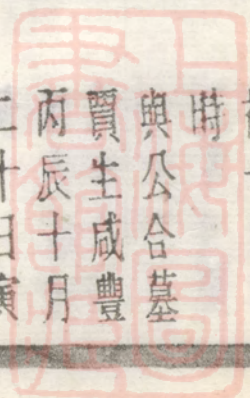 時
與公合墓
賈生咸豐
丙辰十月
二十日寅